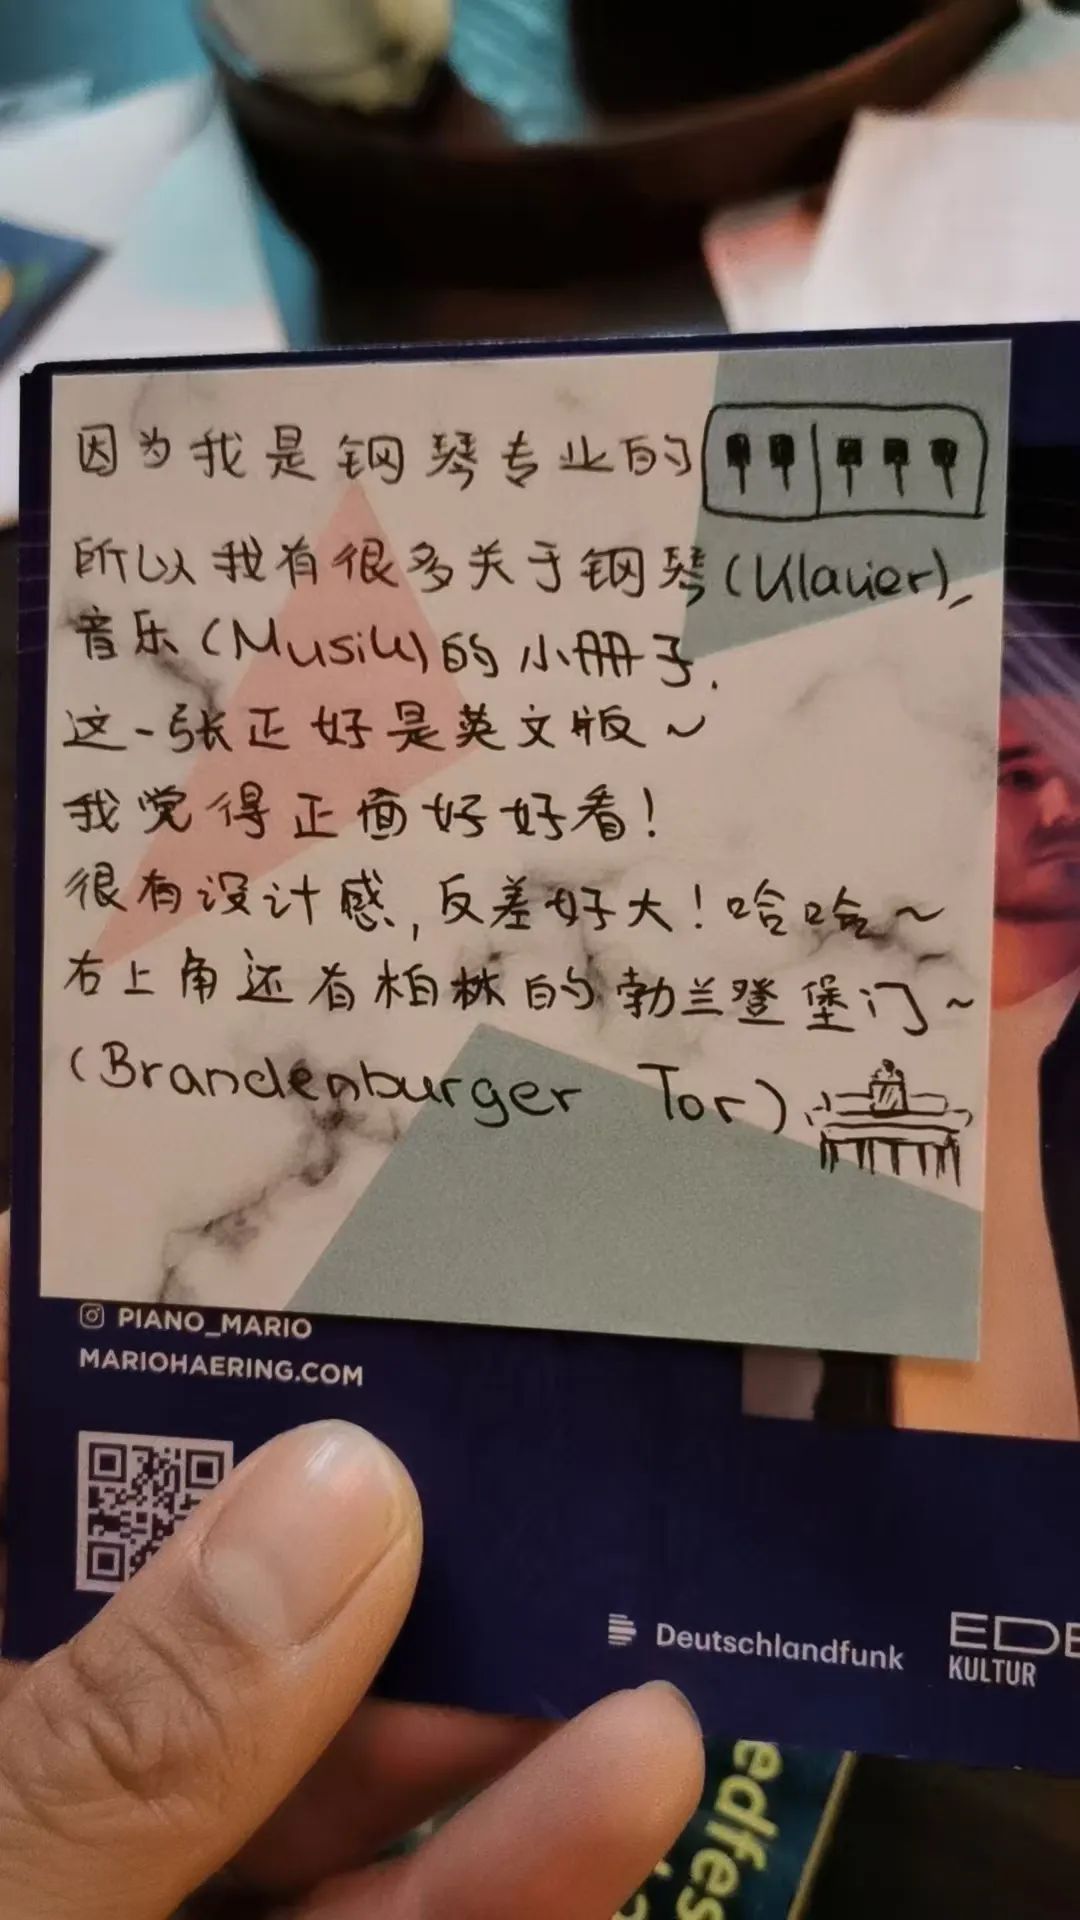 因为我是钢琴专业的
所以我有很多关于钢琴(Klavier),
音乐(Musik)的小册子.
这一张正好是英文版~
我觉得正面好好看!
很有设计感,反差好大!哈哈~
右上角还有柏林的勃兰登堡门~
(Brandenburger Tor)
PIANO_MARIO
MARIOHAERING.COM
Deutschlandfunk
KULTUR
edfes